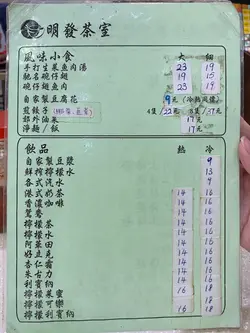 明發茶室
風味小食 大 細
手打生菜魚肉湯 23 19
馳名碗仔翅 19 15
碗仔翅魚肉 23 19
自家製豆腐花 9元(冷熱同價)
煎餃子 4隻/22元
部外油菜 17元
淨麵/飯 17元
飲品 熱 冷
自家製豆漿 9
鮮榨檸檬水 13
各式汽水 9
港式奶茶 14 16
香濃咖啡 14 16
鴛鴦 14 16
檸檬茶 14 16
檸檬水 14 16
阿華田 14 16
好立克 14 16
杏仁霜 14 16
朱古力 14 16
利賓納 14 16
檸檬菜蜜 16 18
檸檬可樂 16 18
檸檬利賓納 16 18